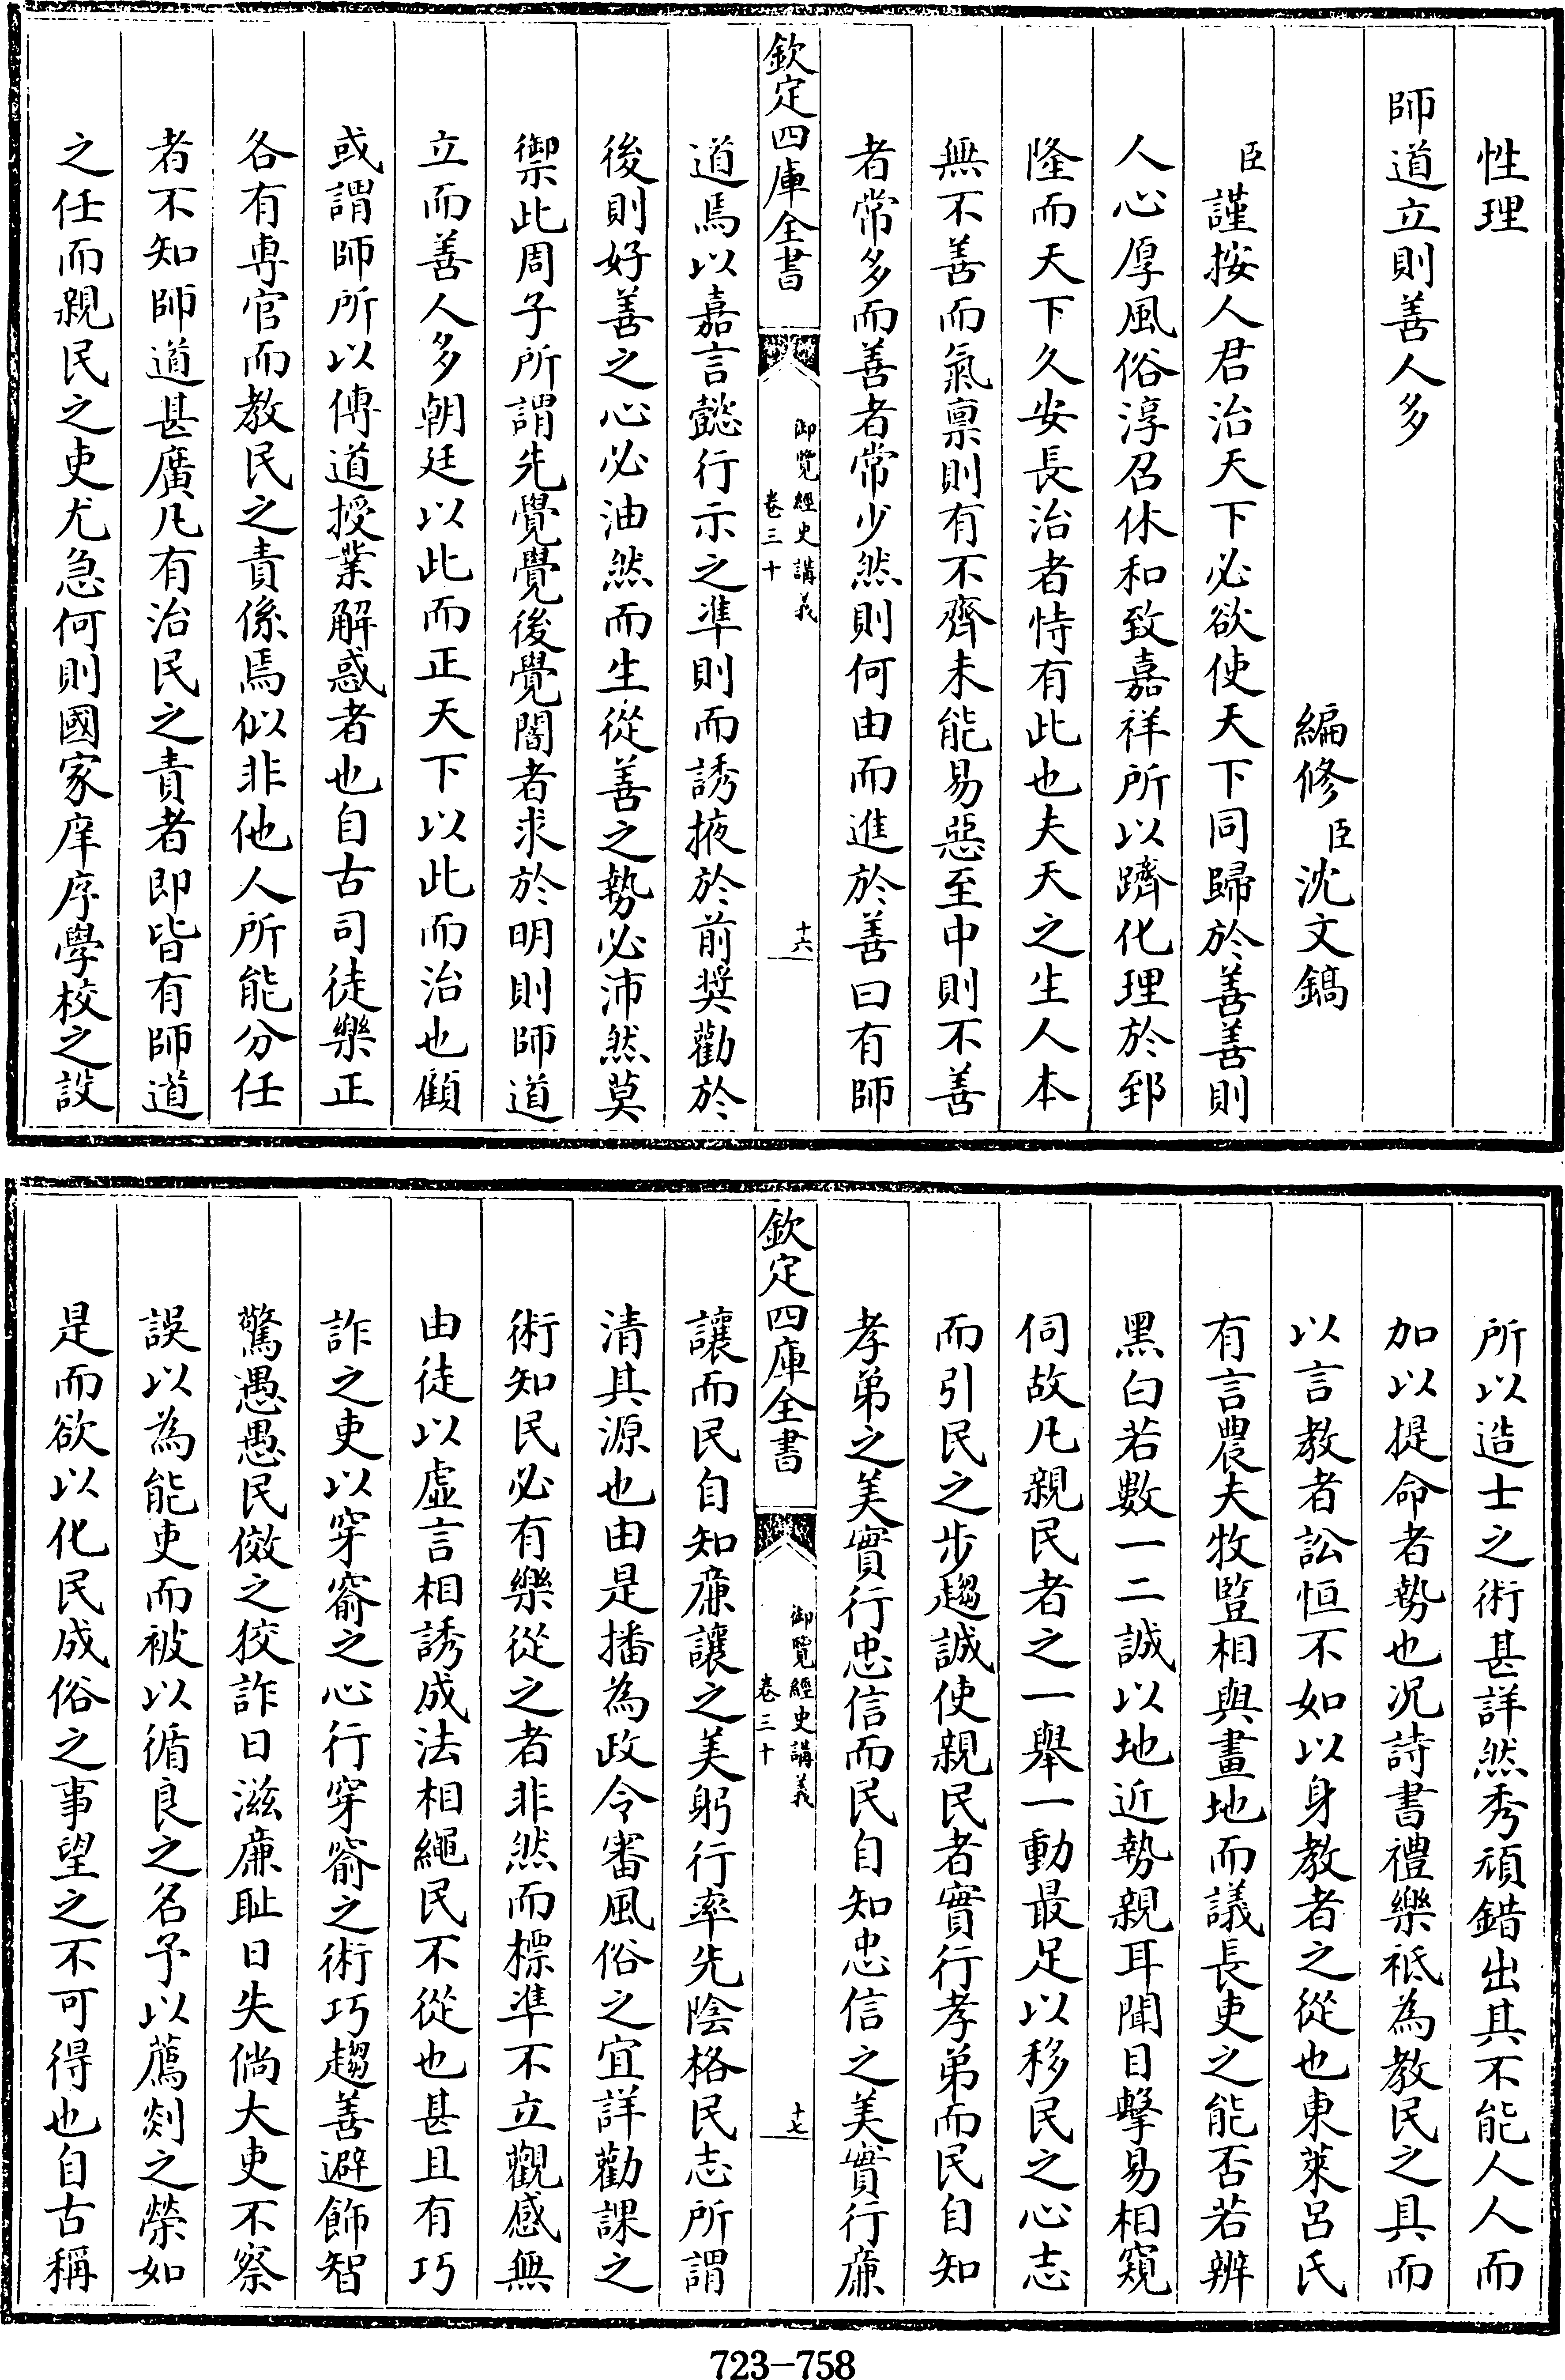 性理
師道立則善人多
編修臣沈文鎬
臣謹按人君治天下必欲使天下同歸於善善則
人心厚風俗淳召休和致嘉祥所以躋化理於郅
隆而天下久安長治者恃有此也夫天之生人本
無不善而氣稟則有不齊未能易惡至中則不善
者常多而善者常少然則何由而進於善曰有師
欽定四庫全書
御覽經史講義
卷三十
十六
道焉以嘉言懿行示之準則而誘掖於前奬勸於
後則好善之心必油然而生從善之勢必沛然莫
禦此周子所謂先覺覺後覺闇者求於明則師道
立而善人多朝廷以此而正天下以此而治也顧
或謂師所以傳道授業解惑者也自古司徒樂正
各有專官而教民之責係焉似非他人所能分任
者不知師道甚廣凡有治民之責者即皆有師道
之任而親民之吏尤急何則國家庠序學校之設
所以造士之術甚詳然秀頑錯出其不能人人而
加以提命者勢也况詩書禮樂祗為教民之具而
以言教者訟恒不如以身教者之從也東萊呂氏
有言農夫牧豎相與畫地而議長吏之能否若辨
黑白若數一二誠以地近勢親耳聞目擊易相窺
伺故凡親民者之一舉一動最足以移民之心志
而引民之步趨誠使親民者實行孝弟而民自知
孝弟之美實行忠信而民自知忠信之美實行廉
欽定四庫全書
御覽經史講義
卷三十
十七
讓而民自知廉讓之美躬行率先陰格民志所謂
清其源也由是播為政令審風俗之宜詳勸課之
術知民必有樂從之者非然而標準不立觀感無
由徒以虛言相誘成法相繩民不從也甚且有巧
詐之吏以穿窬之心行穿窬之術巧趨善避飾智
驚愚愚民傚之狡詐日滋廉恥日失倘大吏不察
誤以為能吏而被以循良之名予以薦剡之榮如
是而欲以化民成俗之事望之不可得也自古稱
723-758